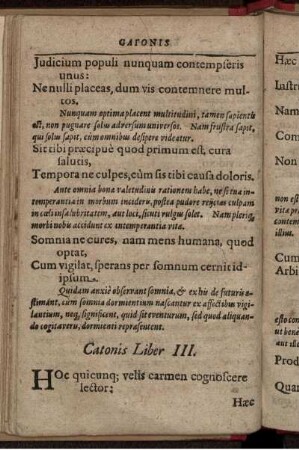 CATONIS
Judicium populi nunquam contempseris
unus:
Ne nulli placeas, dum vis contemnere mul-
tos.
Nunquam optima placent multitudini, tamen sapientis
est, non pugnare solus adversus universos. Nam frustra sapit,
qui solus sapit, cum omnibus desipere videatur.
Sit tibi præcipuè quod primum est, cura
salutis,
Tempora ne culpes, cùm sis tibi causa doloris.
Ante omnia bona valetudinis rationem habe, ne si tua in-
temperantia in morbum incideris, postea pudore rejicias culpam
in cœli insalubritatem, aut loci, sicuti vulgus solet. Nam pleriq;
morbi nobis accidunt ex intemperantia vitæ.
Somnia ne cures, nam mens humana, quod
optat,
Cum vigilat, sperans per somnum cernit id-
ipsum.
Quidam anxiè observant somnia, & ex his de futuris æ-
stimant, cùm somnia dormientium nascantur ex affectibus vigi-
lantium, neq; significent, quid sit eventurum, sed quod aliquan-
do cogitaveris, dormienti repræsentent.
Catonis Liber III.
HOc quicunq; velis carmen cognoscere
lector:
Hæc
Hæc
Iustr
Nec
Conv
Cum
Arbi